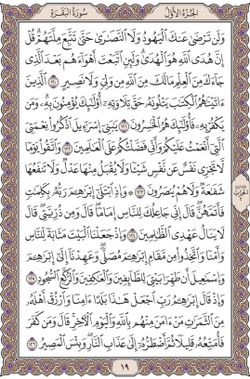 الجزء الأول سورة البقرة
وَلَن تَرْضَىٰ عَنكَ ٱلْيَهُودُ وَلَا ٱلنَّصَٰرَىٰ حَتَّىٰ تَتَّبِعَ مِلَّتَهُمْ قُلْ
إِنَّ هُدَى ٱللَّهِ هُوَ ٱلْهُدَىٰ وَلَئِنِ ٱتَّبَعْتَ أَهْوَآءَهُم بَعْدَ ٱلَّذِى
جَآءَكَ مِنَ ٱلْعِلْمِ مَا لَكَ مِنَ ٱللَّهِ مِن وَلِىٍّ وَلَا نَصِيرٍ ١٢٠ ٱلَّذِينَ
ءَاتَيْنَٰهُمُ ٱلْكِتَٰبَ يَتْلُونَهُۥ حَقَّ تِلَاوَتِهِۦٓ أُو۟لَٰٓئِكَ يُؤْمِنُونَ بِهِۦ وَمَن
يَكْفُرْ بِهِۦ فَأُو۟لَٰٓئِكَ هُمُ ٱلْخَٰسِرُونَ ١٢١ يَٰبَنِىٓ إِسْرَٰٓءِيلَ ٱذْكُرُوا۟ نِعْمَتِىَ
ٱلَّتِىٓ أَنْعَمْتُ عَلَيْكُمْ وَأَنِّى فَضَّلْتُكُمْ عَلَى ٱلْعَٰلَمِينَ ١٢٢ وَٱتَّقُوا۟ يَوْمًا
لَّا تَجْزِى نَفْسٌ عَن نَّفْسٍ شَيْـًٔا وَلَا يُقْبَلُ مِنْهَا عَدْلٌ وَلَا تَنفَعُهَا
شَفَٰعَةٌ وَلَا هُمْ يُنصَرُونَ ١٢٣ وَإِذِ ٱبْتَلَىٰٓ إِبْرَٰهِۦمَ رَبُّهُۥ بِكَلِمَٰتٍ
فَأَتَمَّهُنَّ قَالَ إِنِّى جَاعِلُكَ لِلنَّاسِ إِمَامًا قَالَ وَمِن ذُرِّيَّتِى قَالَ
لَا يَنَالُ عَهْدِى ٱلظَّٰلِمِينَ ١٢٤ وَإِذْ جَعَلْنَا ٱلْبَيْتَ مَثَابَةً لِّلنَّاسِ
وَأَمْنًا وَٱتَّخِذُوا۟ مِن مَّقَامِ إِبْرَٰهِۦمَ مُصَلًّى وَعَهِدْنَآ إِلَىٰٓ إِبْرَٰهِۦمَ
وَإِسْمَٰعِيلَ أَن طَهِّرَا بَيْتِىَ لِلطَّآئِفِينَ وَٱلْعَٰكِفِينَ وَٱلرُّكَّعِ ٱلسُّجُودِ ١٢٥
وَإِذْ قَالَ إِبْرَٰهِۦمُ رَبِّ ٱجْعَلْ هَٰذَا بَلَدًا ءَامِنًا وَٱرْزُقْ أَهْلَهُۥ
مِنَ ٱلثَّمَرَٰتِ مَنْ ءَامَنَ مِنْهُم بِٱللَّهِ وَٱلْيَوْمِ ٱلْـَٔاخِرِ قَالَ وَمَن كَفَرَ
فَأُمَتِّعُهُۥ قَلِيلًا ثُمَّ أَضْطَرُّهُۥٓ إِلَىٰ عَذَابِ ٱلنَّارِ وَبِئْسَ ٱلْمَصِيرُ ١٢٦
١٩